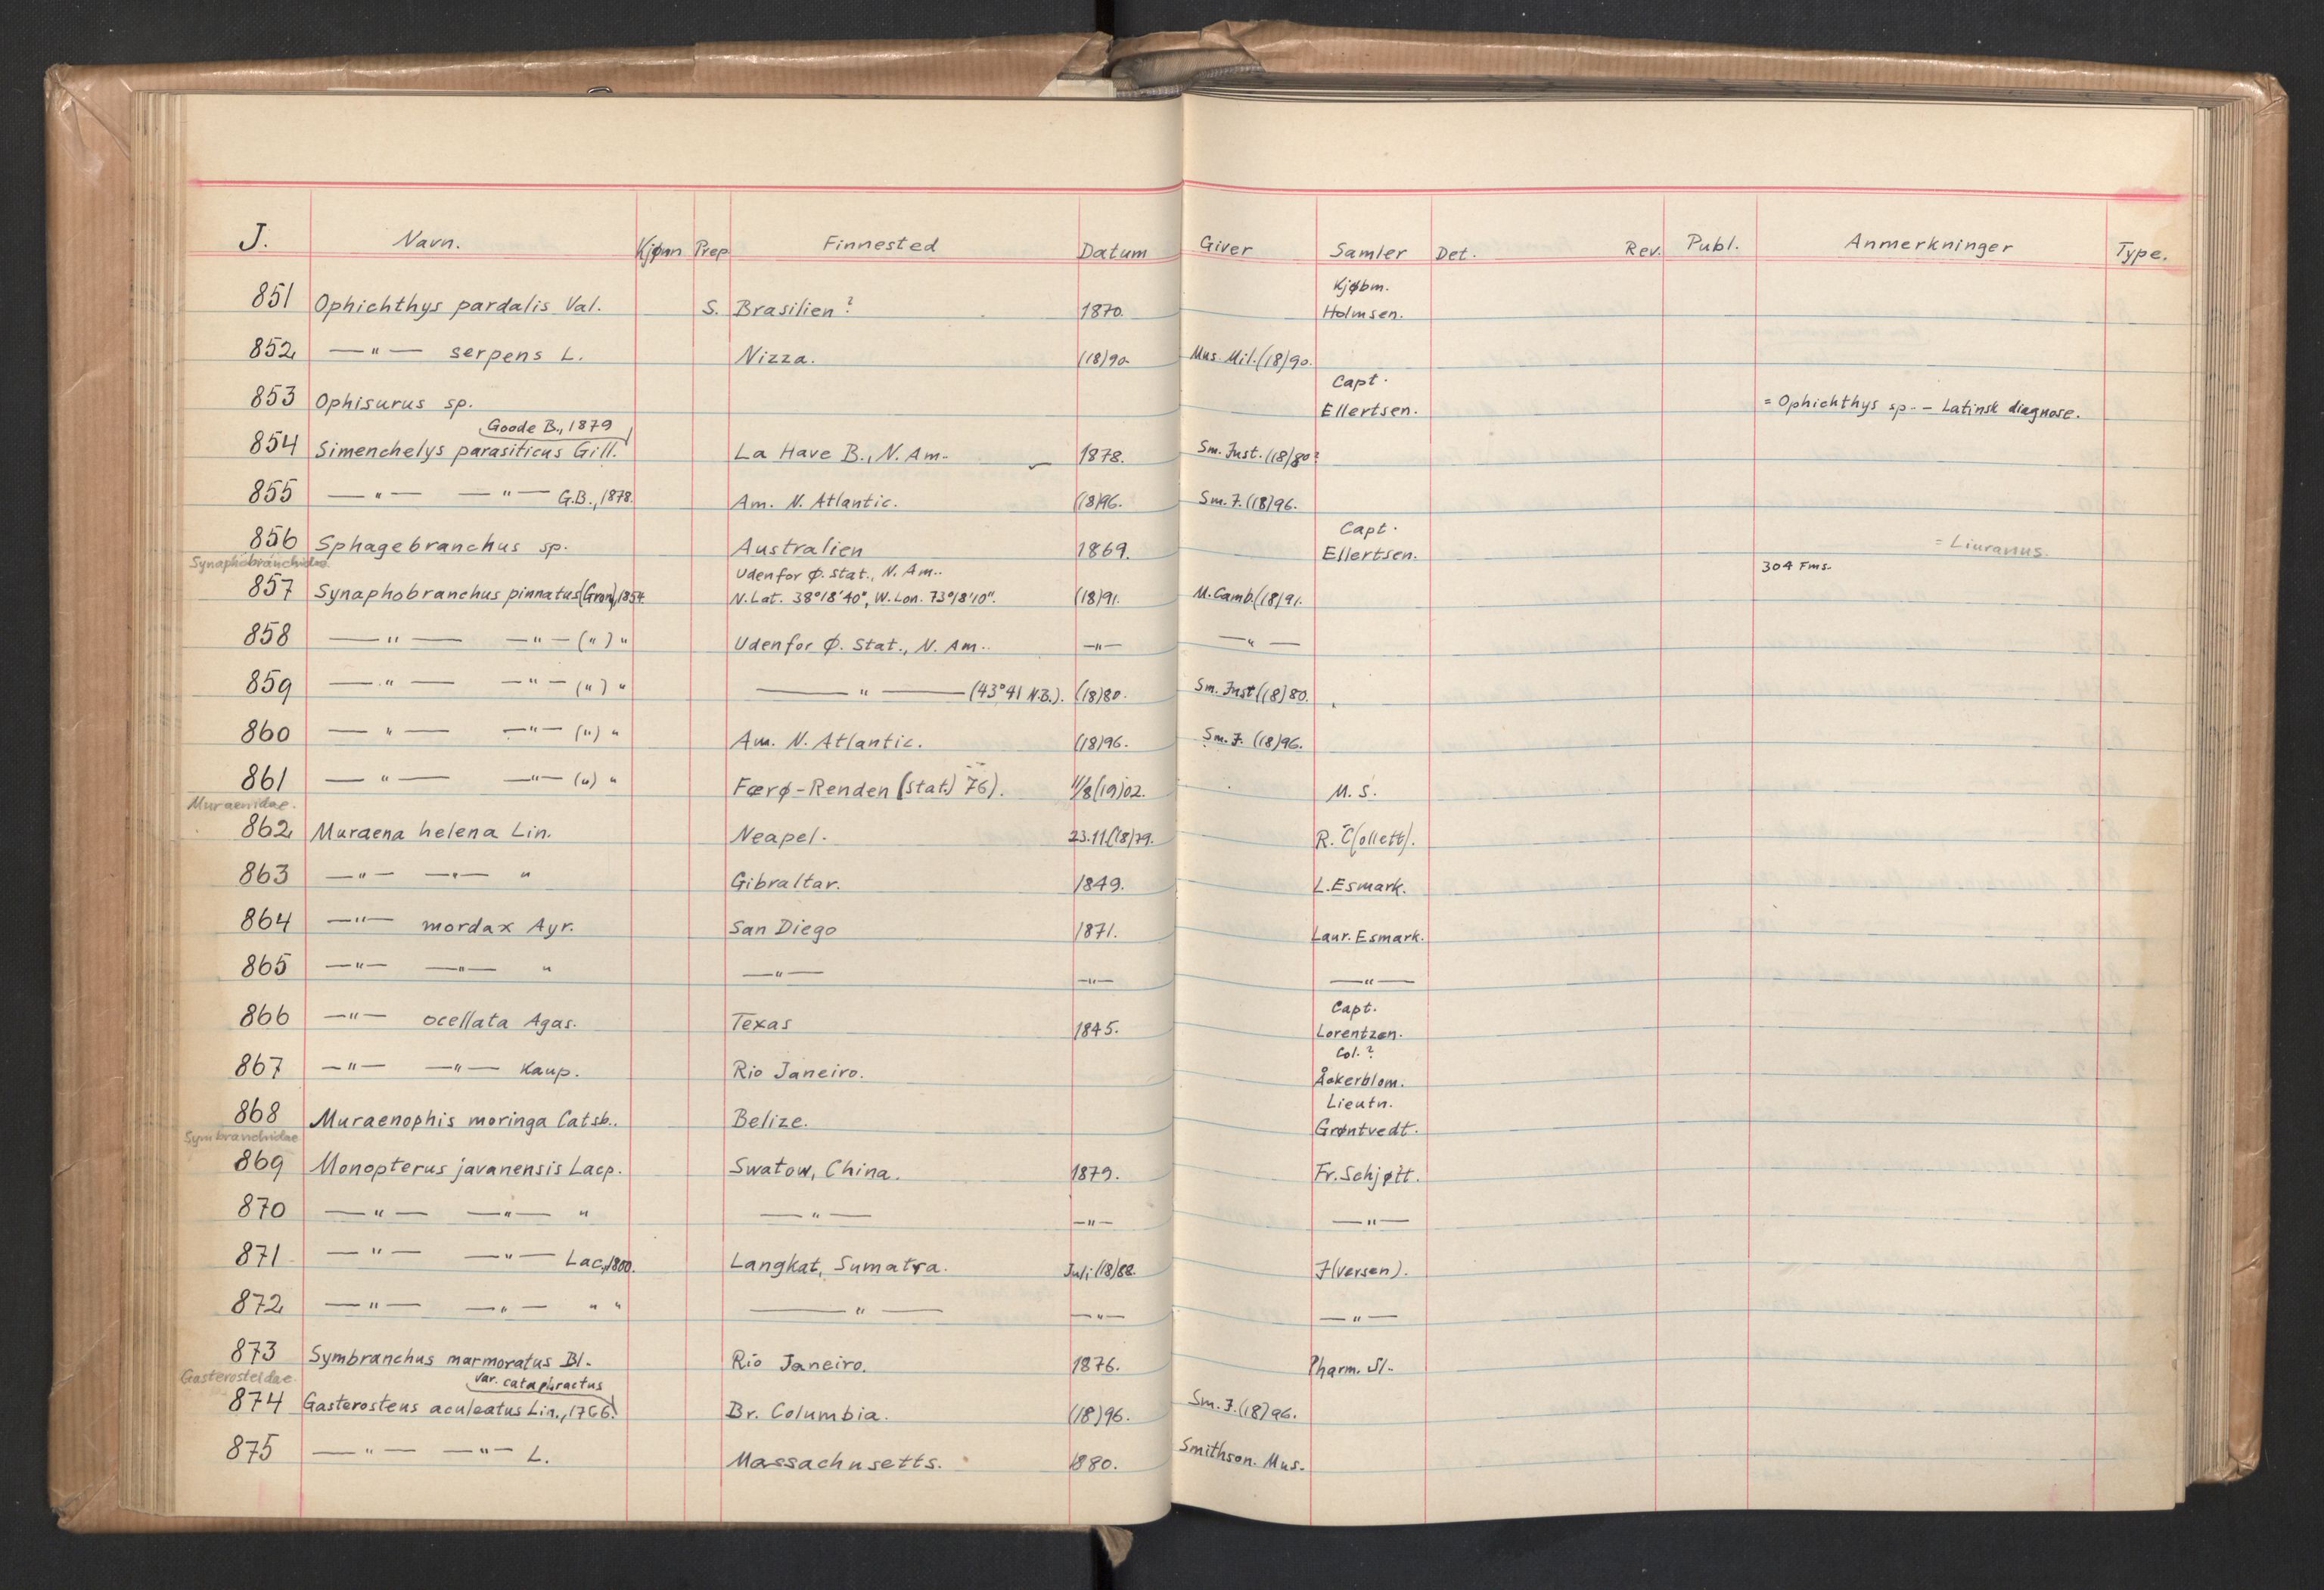 J. Navn. Kjønn Prep Finnested Datum Giver Samler Det. Rev. Publ. Anmerkninger Type.
Kjøbm.
851 Ophichthys pardalis Val. S. Brasilien? 1870. Holmsen.
852 —"— serpens L. Nizza. (18)90. Mus. Mil. (18)90.
Capt.
853 Ophisurus sp. Ellertsen. = Ophichthys sp. - Latinsk diagnose.
Goode B., 1879
854 Simenchelys parasiticus Gill. La Have B., N. Am. 1878. Sm. Inst. (18)80?
855 —"— —"— G.B., 1878. Am. N. Atlantic. (18)96. Sm. I. (18)96.
Capt.
856 Sphagebranchus sp. Australien 1869. Ellertsen. = Liuranus.
Synaphobranchidae. Udenfor Ø. Stat., N. Am.. 304 Fms.
857 Synaphobranchus pinnatus (Gron), 1854. N. Lat. 38°18'40", W. Lon. 73°18'10". (18)91. M. Camb. (18)91.
858 —"— —"— (") " Udenfor Ø. Stat., N. Am.. —"— —"—
859 —"— —"— (") " —"— (43°41 N.B.). (18)80. Sm. Inst (18)80.
860 —"— —"— (") " Am. N. Atlantic. (18)96. Sm. I. (18)96.
861 —"— —"— (") " Færø-Renden (Stat.) 76). 11/8 (19)02. M. S.
Muraenidae.
862 Muraena helena Lin. Neapel. 23.11.(18)79. R. C(ollett).
863 —"— —"— " Gibraltar. 1849. L. Esmark.
864 —"— mordax Ayr. San Diego 1871. Laur. Esmark.
865 —"— —"— " —"— —"— —"—
Capt.
866 —"— ocellata Agas. Texas 1845. Lorentzen.
Col.?
867 —"— —"— Kaup. Rio Janeiro. Åckerblom.
Lieutn.
868 Muraenophis moringa Catsb.. Belize. Grøntvedt.
Symbranchidae
869 Monopterus javanensis Lacp. Swatow, China. 1879. Fr. Schjøtt.
870 —"— —"— " —"— —"— —"—
871 —"— —"— Lac., 1800. Langkat, Sumatra. Juli (18)88. I(versen).
872 —"— —"— " " —"— —"— —"—
873 Symbranchus marmoratus Bl. Rio Janeiro. 1876. Pharm.
Gasterosteidae. var. cataphractus
874 Gasterosteus aculeatus Lin., 1766. Br. Columbia. (18)96. Sm. I. (18)96.
875 —"— —"— L. Massachusetts. 1880. Smithson. Mus.